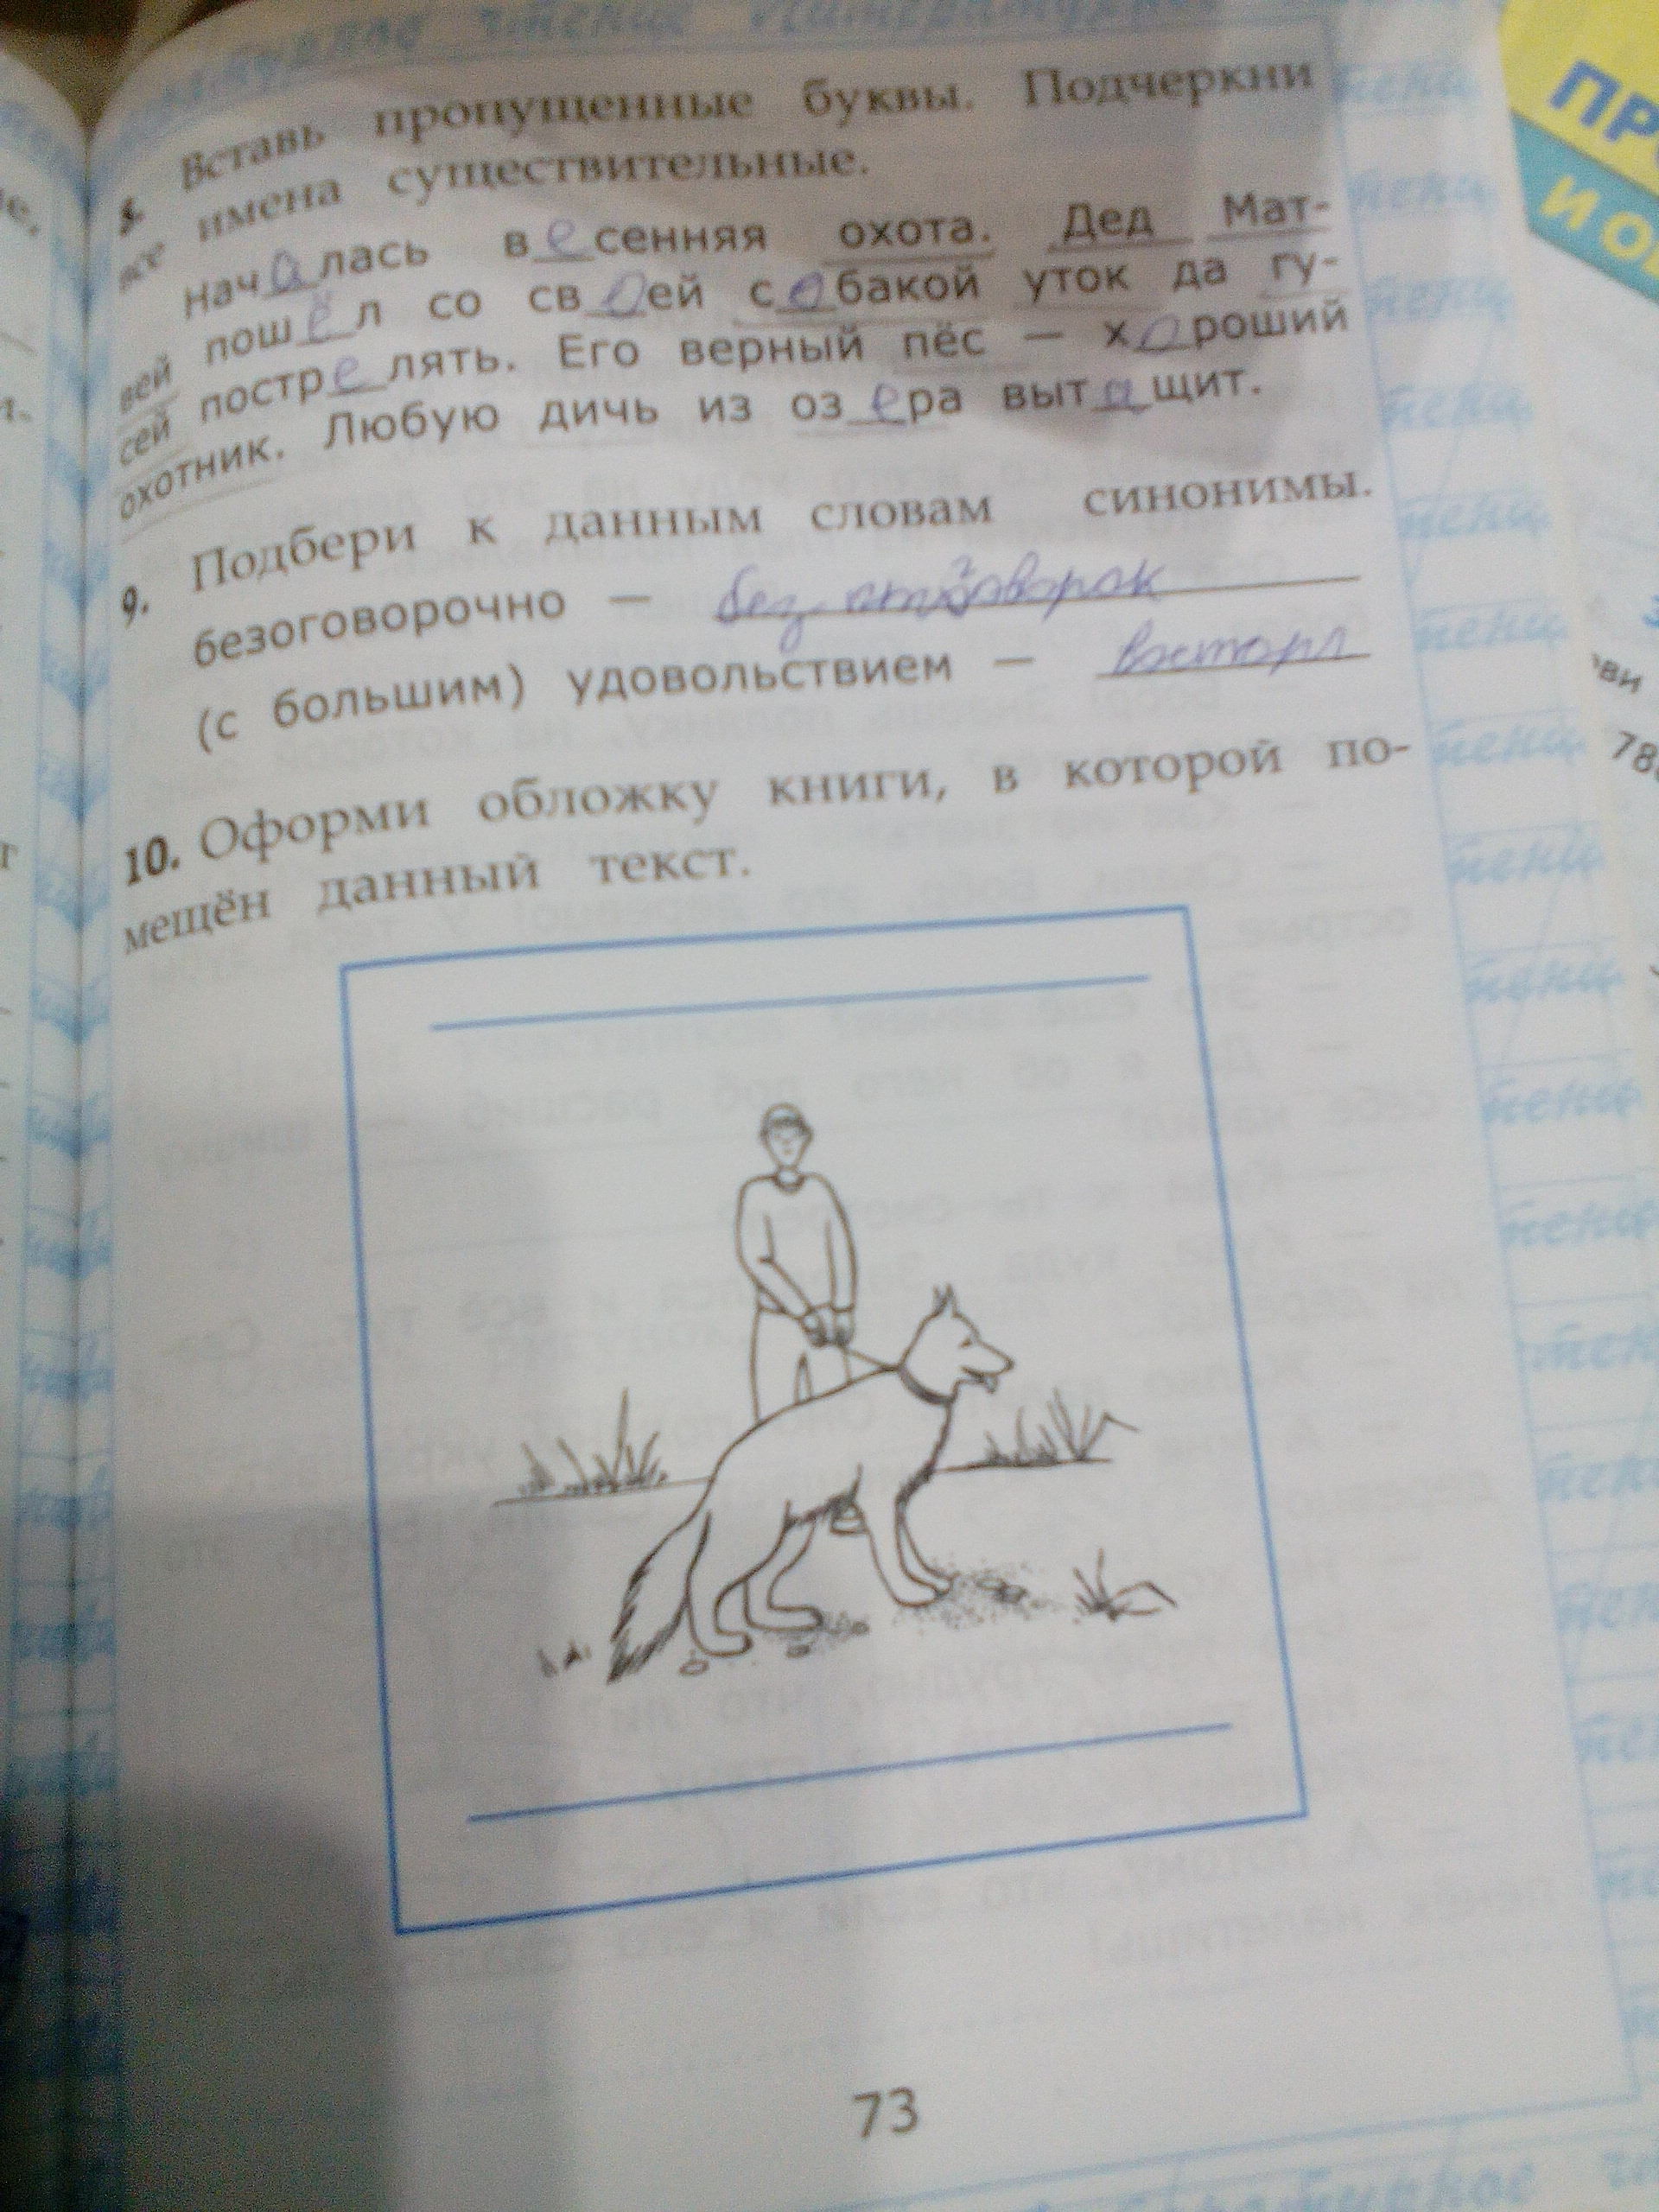 8. Вставь пропущенные буквы. Подчеркни
все имена существительные.
Началась весенняя охота. Дед Мат-
вей пошёл со своей собакой уток да гу-
сей пострелять. Его верный пёс — хороший
охотник. Любую дичь из озера вытащит.
9. Подбери к данным словам синонимы.
безоговорочно — без отговорок
(с большим) удовольствием —
10. Оформи обложку книги, в которой по-
мещён данный текст.
73
ПР
И О